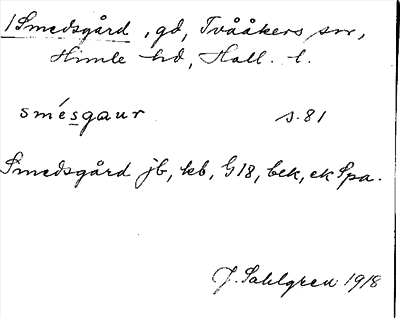 1 Smedsgård, gd, Tvååkers sn,
Himle hd, Hall. l.
smésgaur s. 81
Smedsgård jb, kb, G18, bek, ek Spa.
J. Sahlgren 1918